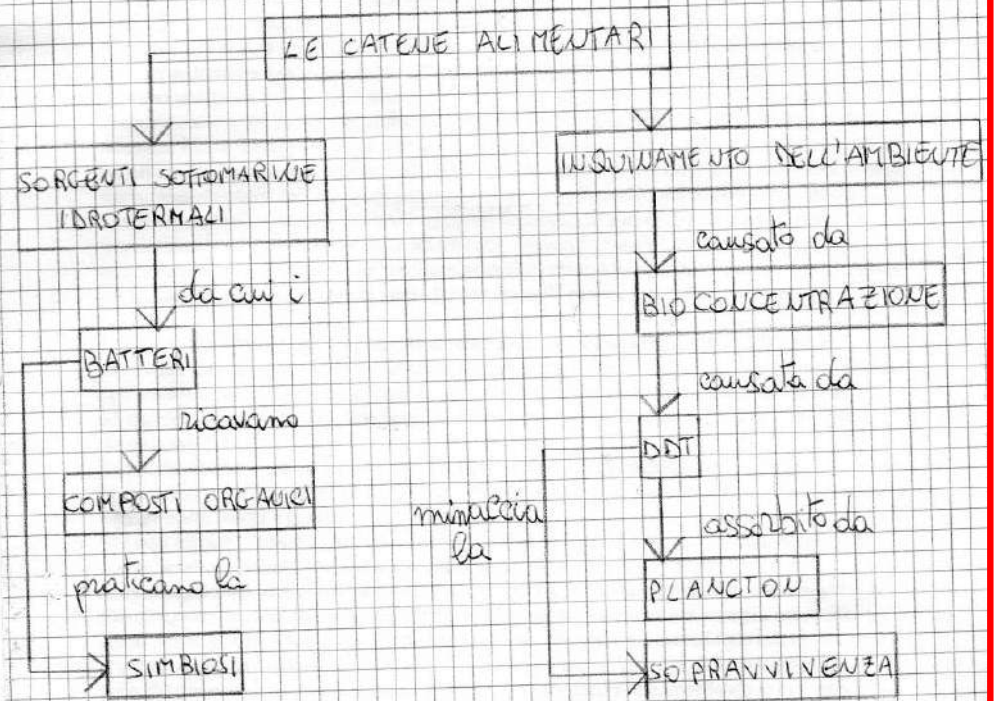 LE CATENE ALIMENTARI
SORGENTI SOTTOMARINE
IDROTERMALI
da cui i
BATTERI
ricavano
COMPOSTI ORGANICI
praticano la
SIMBIOSI
INQUINAMENTO DELL'AMBIENTE
causato da
BIOCONCENTRAZIONE
causata da
DDT
minaccia
la
assorbito da
PLANCTON
SOPRAVVIVENZA